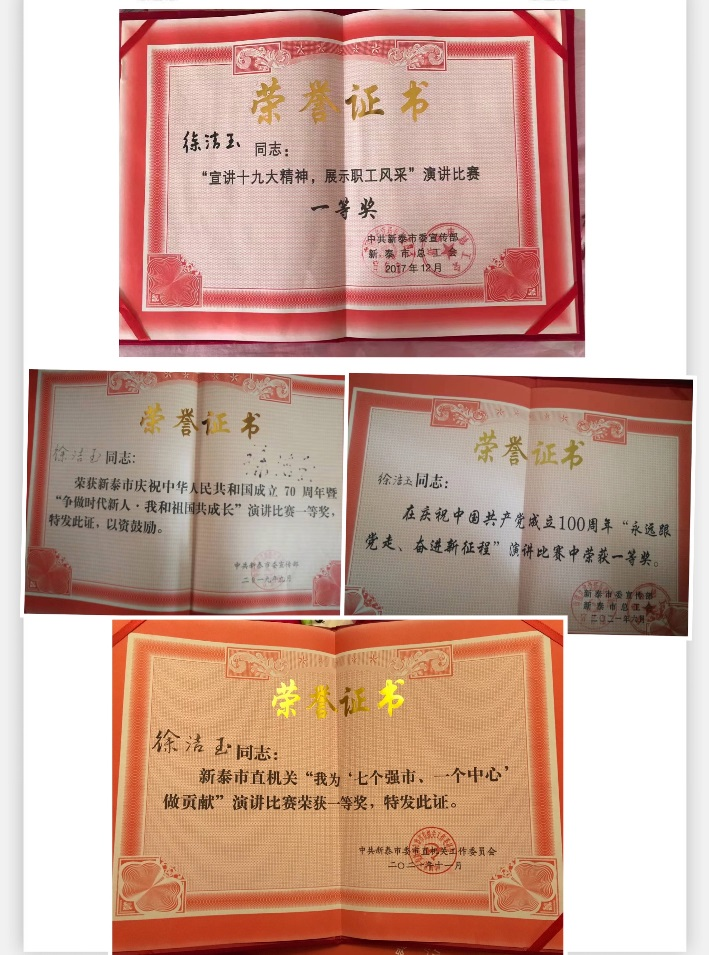 荣誉证书
徐洁玉 同志：
“宣讲十九大精神，展示职工风采”演讲比赛
一等奖
中共新泰市委宣传部
新泰市总工会
2017年12月
荣誉证书
徐洁玉同志：
荣获新泰市庆祝中华人民共和国成立 70 周年暨
“争做时代新人·我和祖国共成长”演讲比赛一等奖，
特发此证，以资鼓励。
中共新泰市委宣传部
二〇一九年九月
荣誉证书
徐洁玉同志：
在庆祝中国共产党成立100周年“永远跟
党走、奋进新征程”演讲比赛中荣获一等奖。
新泰市委宣传部
新泰市总工会
二〇二一年六月
荣誉证书
徐洁玉同志：
新泰市直机关“我为‘七个强市、一个中心’
做贡献”演讲比赛荣获一等奖，特发此证。
中共新泰市委市直机关工作委员会
二〇二一年十一月